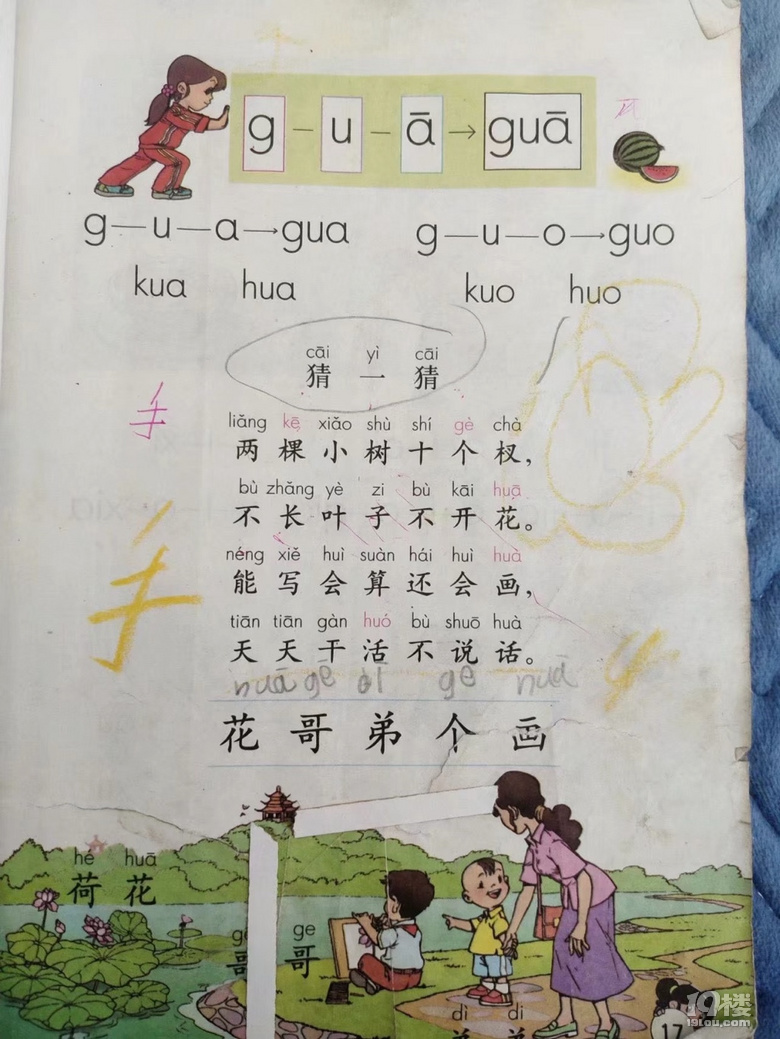 g — u — ā → guā
瓜
g—u—a→gua g—u—o→guo
kua hua kuo huo
cāi yì cāi
猜 一 猜
手
liǎng kē xiǎo shù shí gè chà
两 棵 小 树 十 个 杈,
bù zhǎng yè zi bù kāi huā
不 长 叶 子 不 开 花。
néng xiě huì suàn hái huì huà
能 写 会 算 还 会 画,
手
tiān tiān gàn huó bù shuō huà
天 天 干 活 不 说 话。
花 哥 弟 个 画
hé huā
荷 花
gē ge
哥 哥
dì di
弟 弟
17
19楼
19lou.com